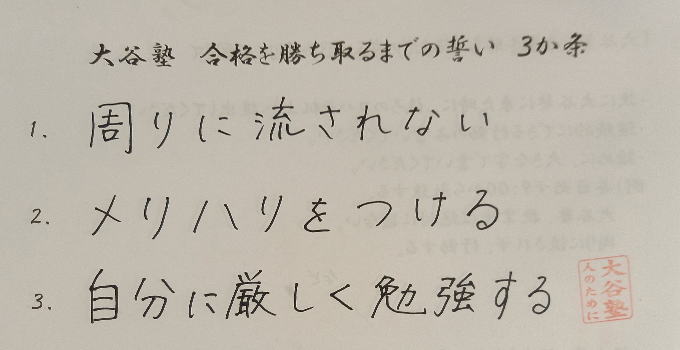 大谷塾 合格を勝ち取るまでの誓い 3か条
1. 周りに流されない
2. メリハリをつける
3. 自分に厳しく勉強する
大谷塾
人のために